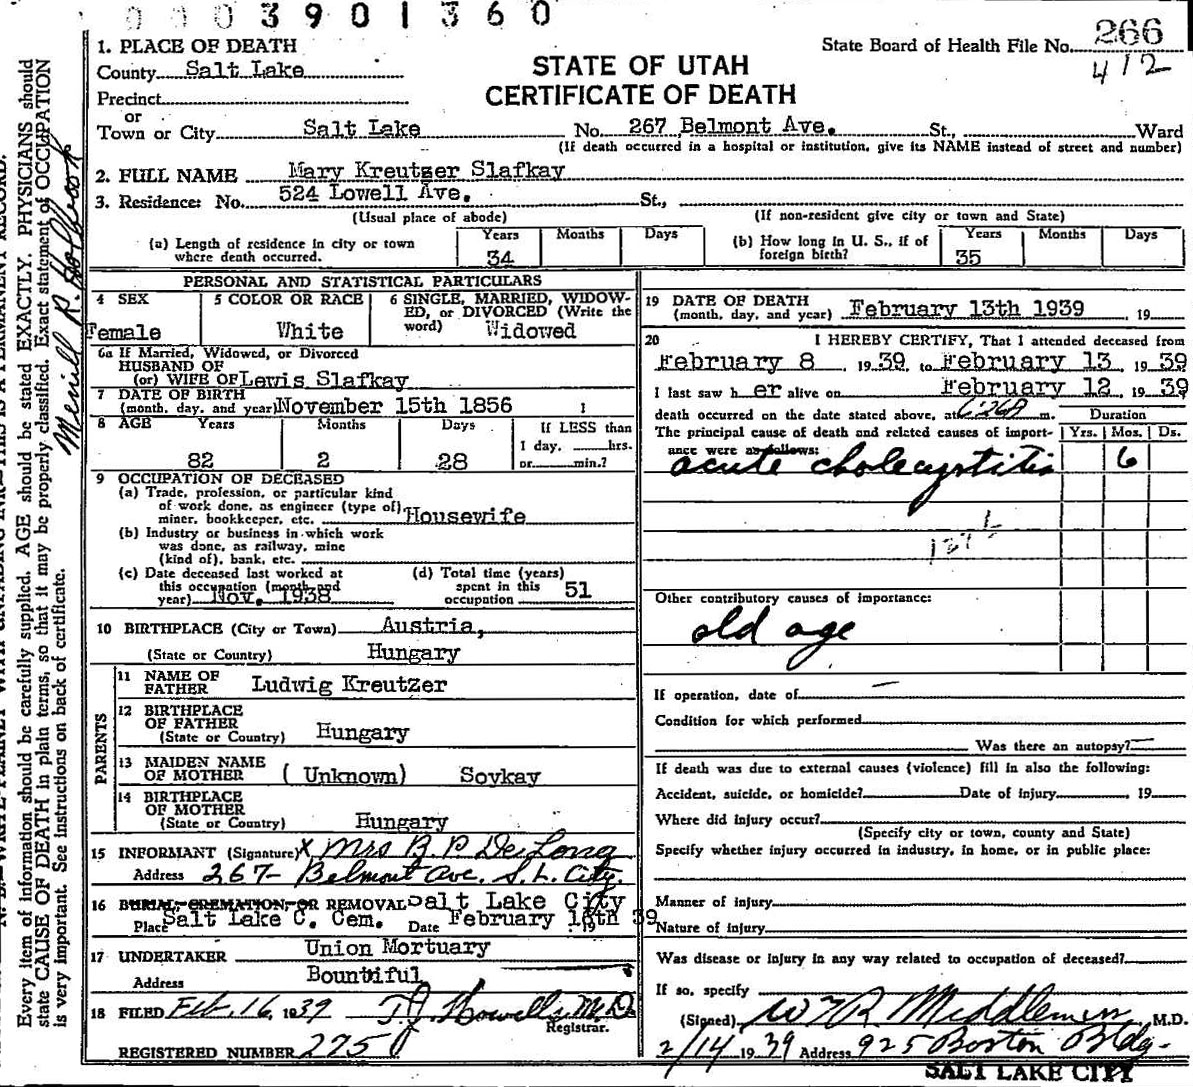 0003901360
1. PLACE OF DEATH
State Board of Health File No. 266
412
County Salt Lake
STATE OF UTAH
CERTIFICATE OF DEATH
Precinct
or
Town or City Salt Lake No. 267 Belmont Ave. St., Ward
(If death occurred in a hospital or institution, give its NAME instead of street and number)
2. FULL NAME Mary Kreutzer Slafkay
3. Residence: No. 524 Lowell Ave. St.,
(Usual place of abode) (If non-resident give city or town and State)
(a) Length of residence in city or town where death occurred. Years 34 Months Days
(b) How long in U. S., if of foreign birth? Years 35 Months Days
PERSONAL AND STATISTICAL PARTICULARS
4 SEX Female
5 COLOR OR RACE White
6 SINGLE, MARRIED, WIDOWED, or DIVORCED (Write the word) Widowed
6a If Married, Widowed, or Divorced
HUSBAND OF
(or) WIFE OF Lewis Slafkay
7 DATE OF BIRTH
(month, day, and year) November 15th 1856 1
8 AGE Years Months Days If LESS than
1 day, hrs.
82 2 28 or min.?
9 OCCUPATION OF DECEASED
(a) Trade, profession, or particular kind
of work done, as engineer (type of)
miner, bookkeeper, etc. Housewife
(b) Industry or business in which work
was done, as railway, mine
(kind of), bank, etc.
(c) Date deceased last worked at
this occupation (month and
year) Nov. 1938
(d) Total time (years)
spent in this
occupation 51
10 BIRTHPLACE (City or Town) Austria,
(State or Country) Hungary
PARENTS
11 NAME OF
FATHER Ludwig Kreutzer
12 BIRTHPLACE
OF FATHER
(State or Country) Hungary
13 MAIDEN NAME
OF MOTHER (Unknown) Soykay
14 BIRTHPLACE
OF MOTHER
(State or Country) Hungary
15 INFORMANT (Signature) x Mrs B. P. De Long
Address 267- Belmont Ave. S. L. City.
16 BURIAL, CREMATION, OR REMOVAL Salt Lake City
Place Salt Lake C. Cem. Date February 16th 1939
17 UNDERTAKER Union Mortuary
Address Bountiful
18 FILED Feb. 16, 1939 T. J. Howells M.D.
Registrar.
REGISTERED NUMBER 275
19 DATE OF DEATH
(month, day, and year) February 13th 1939 , 19
20 I HEREBY CERTIFY, That I attended deceased from
February 8 , 1939, to February 13, 1939
I last saw her alive on February 12, 1939
death occurred on the date stated above, at m. Duration
The principal cause of death and related causes of import- Yrs. Mos. Ds.
ance were as follows:
acute cholecystitis 6
Other contributory causes of importance:
old age
If operation, date of —
Condition for which performed
Was there an autopsy? —
If death was due to external causes (violence) fill in also the following:
Accident, suicide, or homicide? Date of injury , 19
Where did injury occur?
(Specify city or town, county and State)
Specify whether injury occurred in industry, in home, or in public place:
Manner of injury
Nature of injury
Was disease or injury in any way related to occupation of deceased?
If so, specify
(Signed) Middlemiss M.D.
2/14 1939 Address 925 Boston Bldg.
SALT LAKE CITY
Every item of information should be carefully supplied. AGE should be stated EXACTLY. PHYSICIANS should
state CAUSE OF DEATH in plain terms, so that it may be properly classified. Exact statement of OCCUPATION
is very important. See instructions on back of certificate.
Merrill R. Holbrook